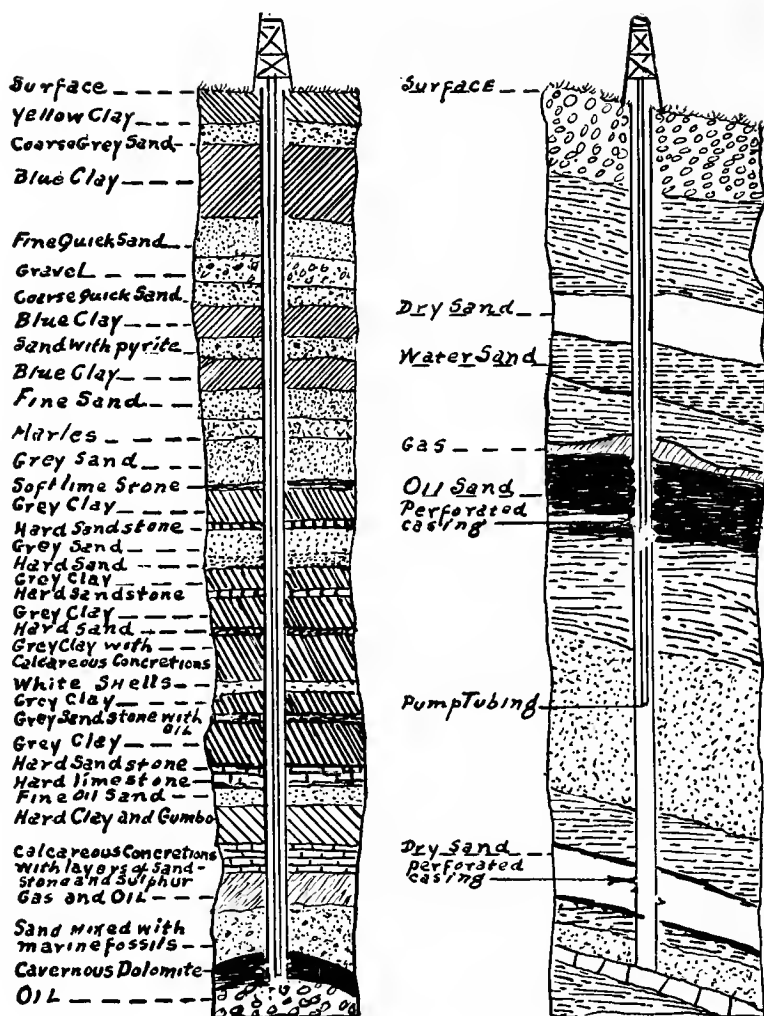 Surface
Yellow Clay
Coarse Grey Sand
Blue Clay
Fine Quick Sand
Gravel
Coarse Quick Sand
Blue Clay
Sand with pyrite
Blue Clay
Fine Sand
Marles
Grey Sand
Soft lime Stone
Grey Clay
Hard Sandstone
Grey Sand
Hard Sand
Grey Clay
Hard Sandstone
Grey Clay
Hard Sand
Grey Clay with
Calcareous Concretions
White Shells
Grey Clay
Grey Sandstone with
Oil
Grey Clay
Hard Sandstone
Hard limestone
Fine Oil Sand
Hard Clay and Gumbo
Calcareous Concretions
with layers of Sand-
stone and Sulphur
Gas and Oil
Sand Mixed with
marine fossils
Cavernous Dolomite
OIL
Surface
Dry Sand
Water Sand
Gas
Oil Sand
Perforated
casing
Pump Tubing
Dry Sand
perforated
casing